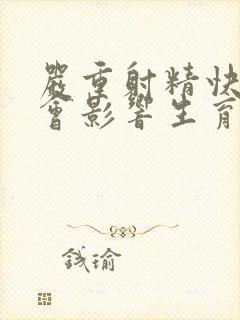 嚴重射精快
會影響生育
錢瑜